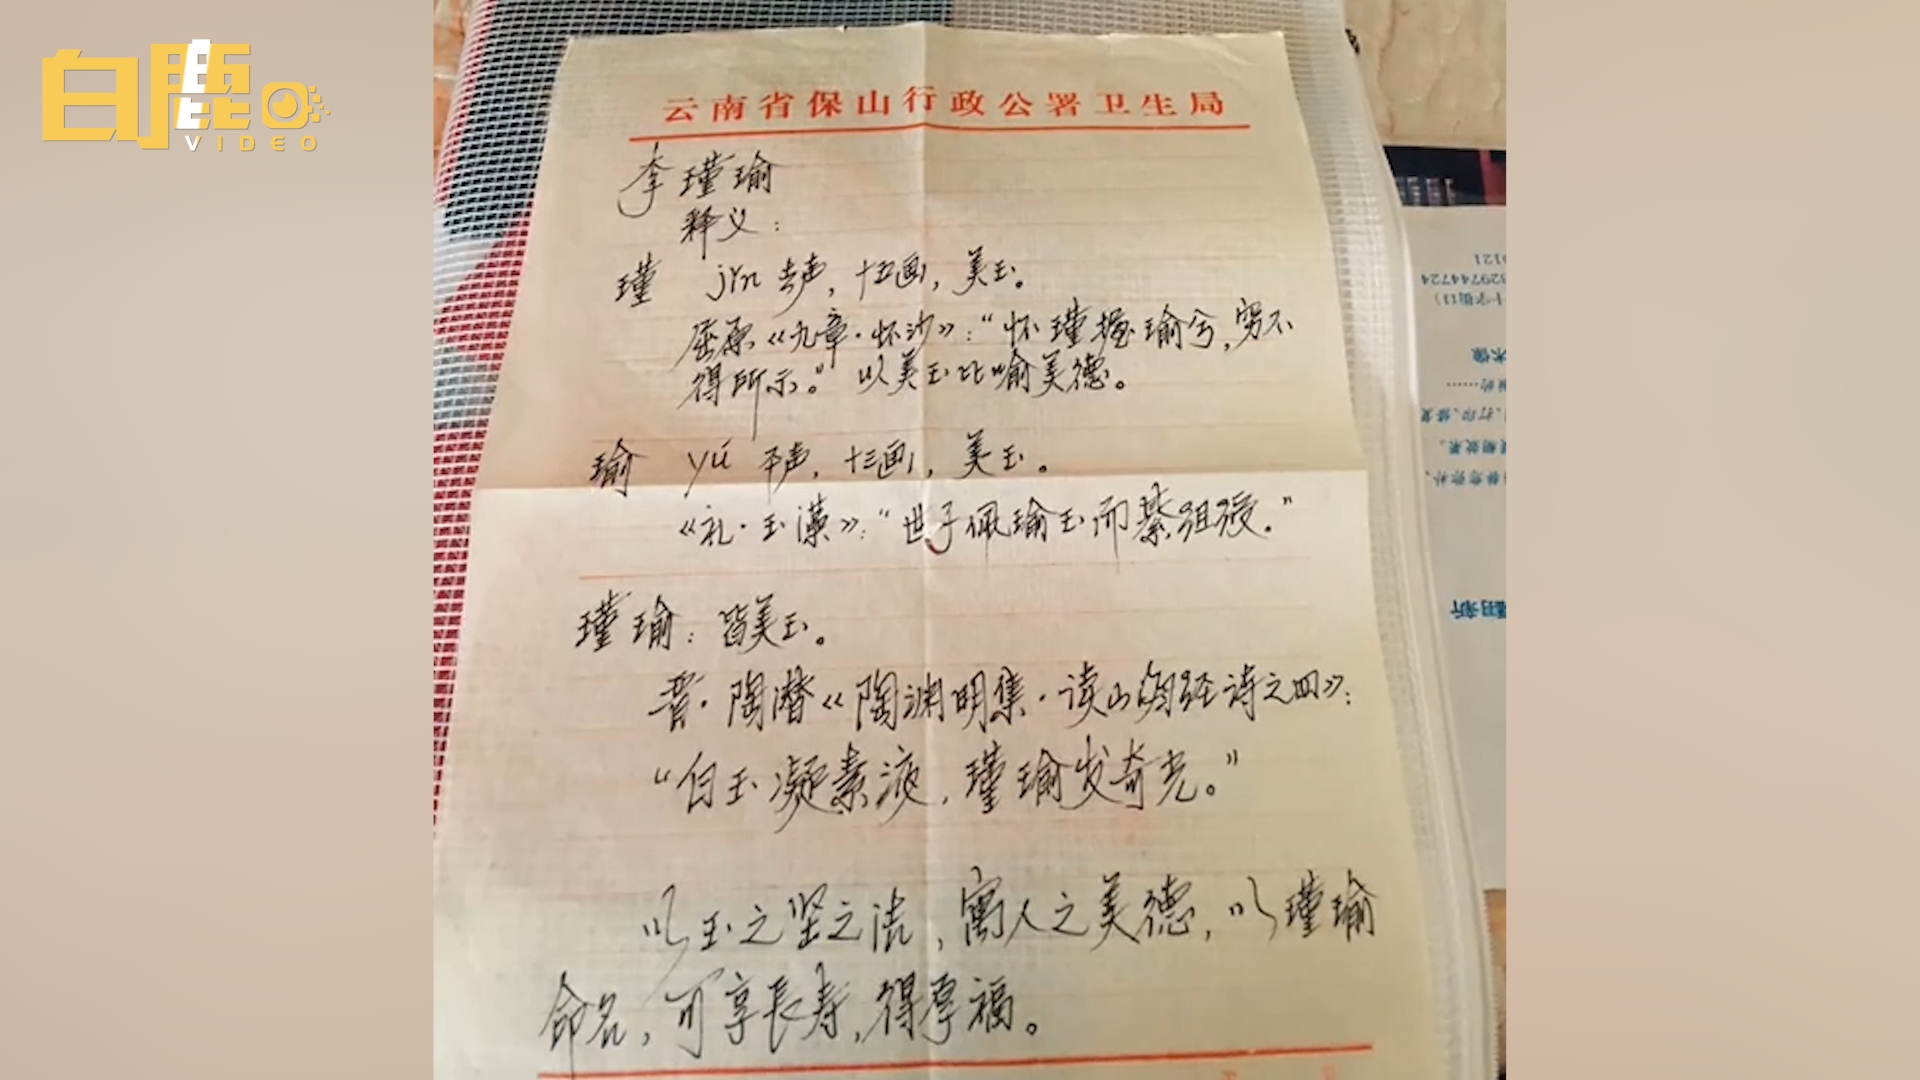 白鹿
VIDEO
云南省保山行政公署卫生局
李瑾瑜
释义：
瑾 jǐn 去声，十五画，美玉。
屈原《九章·怀沙》：“怀瑾握瑜兮，穷不
得所示。”以美玉比喻美德。
瑜 yú 平声，十三画，美玉。
《礼·玉藻》：“世子佩瑜玉而綦组绶.”
瑾瑜：皆美玉。
晋·陶潜《陶渊明集·读山海经诗之四》：
“白玉凝素液，瑾瑜发奇光。”
以玉之坚之洁，寓人之美德，以瑾瑜
命名，可享長寿，得厚福。